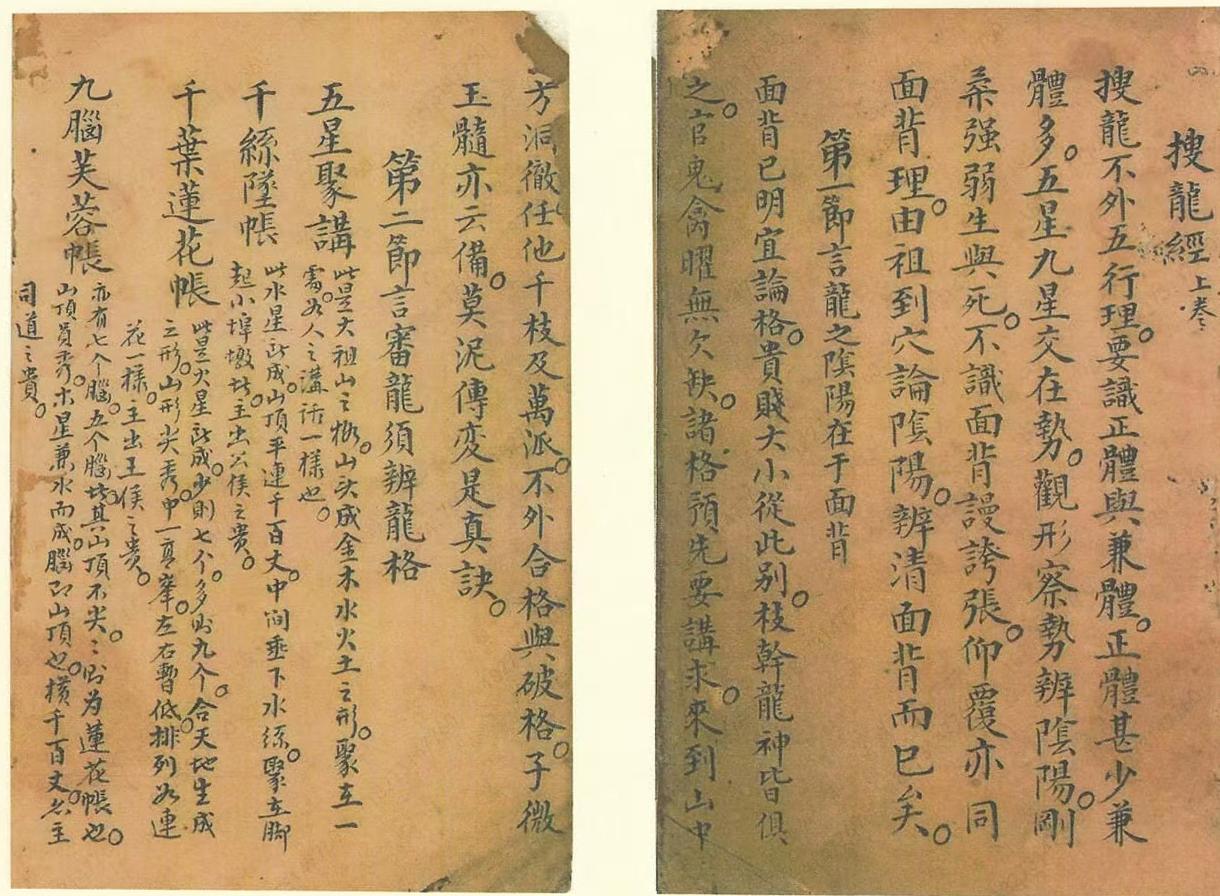 搜龍經上卷
搜龍不外五行理。要識正體與兼體。正體甚少兼
體多。五星九星交在勢。觀形察勢辨陰陽。剛
柔强弱生與死。不識面背謾誇張。仰覆亦同
面背理。由祖到穴論陰陽。辨清面背而已矣。
第一節言龍之陰陽在于面背
面背已明宜論格。貴賤大小從此别。枝幹龍神皆俱
之。官鬼禽曜無欠缺。諸格預先要講求。來到山中
方洞徹任他千枝及萬派。不外合格與破格。子微
玉髓亦云備。莫泥傳変是真訣。
第二節言審龍須辨龍格
五星聚講 此是大祖山之格。山头成金木水火土之形。聚立一
處。如人之講話一樣也。
千絲墜帳 此水星所成。山頂平連千百丈。中间垂下水絲。聚立脚
起小埠墩。皆主出公侯之貴。
千葉蓮花帳 此是火星所成。少則七个。多則九个。合天地生成
之形。山形尖秀。中一高峯。左右暫低。排列如連
花一樣。主出王侯之貴。
九腦芙蓉帳 亦有七个腦。五个腦。皆其山頂不尖。尖則为蓮花帳也。
山頂員秀。木星兼水而成。腦即山頂也。横千百丈。亦主
同道之貴。